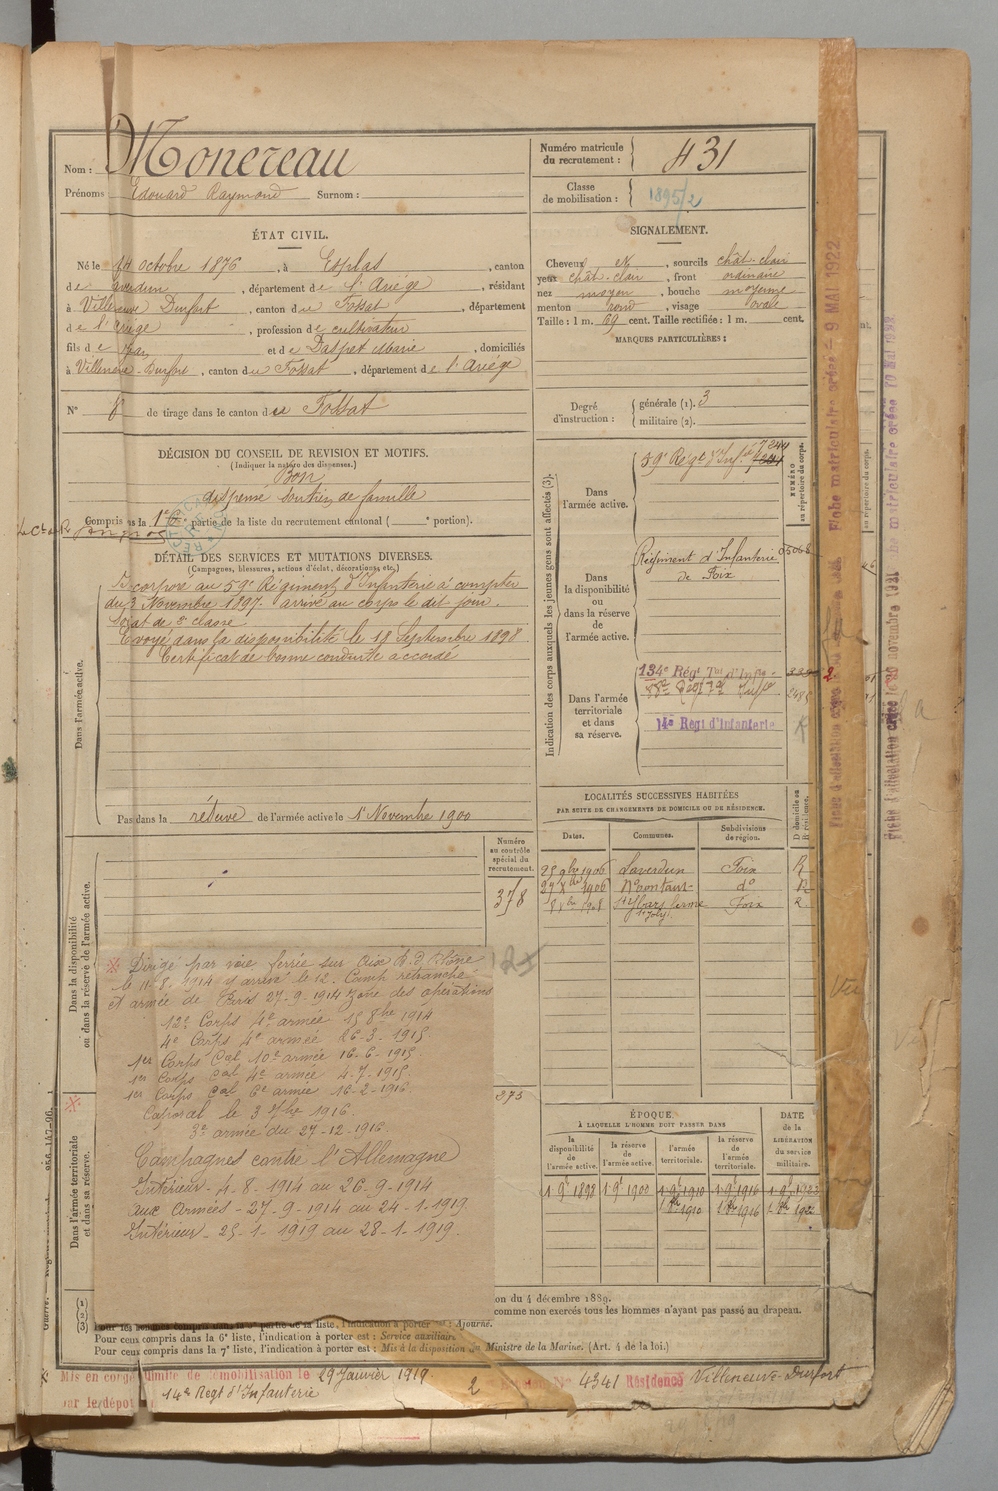 Nom : Monereau
Prénoms Edouard Raymond Surnom :
Numéro matricule du recrutement : 431
Classe de mobilisation : 1895/2
ÉTAT CIVIL.
Né le 14 octobre 1876, à Esplas, canton
de Saverdun, département de l'Ariège, résidant
à Villeneuve Durfort, canton du Fossat, département
de l'Ariège, profession de cultivateur
fils de Jean et de Daspet Marie, domiciliés
à Villeneuve-Durfort, canton du Fossat, département de l'Ariège
N° 8 de tirage dans le canton du Fossat
SIGNALEMENT.
Cheveux et, sourcils chât-clair
yeux chât-clair, front ordinaire
nez moyen, bouche moyenne
menton rond, visage ovale
Taille : 1 m. 69 cent. Taille rectifiée : 1 m. cent.
MARQUES PARTICULIÈRES :
Degré d'instruction : générale (1). 3
militaire (2).
DÉCISION DU CONSEIL DE REVISION ET MOTIFS.
(Indiquer la nature des dispenses.)
Bon
dispensé soutien de famille
Compris dans la 1re partie de la liste du recrutement cantonal ( e portion).
DÉTAIL DES SERVICES ET MUTATIONS DIVERSES.
(Campagnes, blessures, actions d'éclat, décorations, etc.)
Dans l'armée active.
Incorporé au 59e Régiment d'Infanterie à compter
du 3 Novembre 1897. arrivé au corps le dit jour.
Soldat de 2e classe
Envoyé dans la disponibilité le 18 Septembre 1898
Certificat de bonne conduite accordé
Pas dans la réserve de l'armée active le 1er Novembre 1900
Indication des corps auxquels les jeunes gens sont affectés (3).
NUMÉRO au répertoire du corps.
Dans l'armée active.
59e Régt d'Infie 7244
Dans la disponibilité ou dans la réserve de l'armée active.
Régiment d'Infanterie 05068
de Foix
Dans l'armée territoriale et dans sa réserve.
134e Régt Tal d'Infie
14e Regt d'Infanterie
LOCALITÉS SUCCESSIVES HABITÉES
PAR SUITE DE CHANGEMENTS DE DOMICILE OU DE RÉSIDENCE.
Dates. Communes. Subdivisions de région. D domicile ou R résidence.
25 9bre 1906 Saverdun Foix R
1906 Montaut do R
1908 St Ybars ferme Foix R
St Joly
Dans la disponibilité ou dans la réserve de l'armée active.
Numéro au contrôle spécial du recrutement.
378
Dirigé par voie ferrée sur Aix B. d. Rhône
le 11-8-1914 y arrivé le 12. Camp retranché
et armée de Paris 27-9-1914 Zone des opérations
12e Corps 4e armée 15 8bre 1914
4e Corps 4e armée 26-3-1915
1er Corps Cal 10e armée 16-6-1915.
1er Corps Cal 4e armée 4-7-1915
1er Corps Cal 6e armée 16-2-1916
Caporal le 3 7bre 1916.
3e armée du 27-12-1916.
Campagnes contre l'Allemagne
Intérieur - 4-8-1914 au 26-9-1914
aux Armées - 27-9-1914 au 24-1-1919
Intérieur - 25-1-1919 au 28-1-1919.
Dans l'armée territoriale et dans sa réserve.
ÉPOQUE
À LAQUELLE L'HOMME DOIT PASSER DANS
la disponibilité de l'armée active. la réserve de l'armée active. l'armée territoriale. la réserve de l'armée territoriale. DATE de la LIBÉRATION du service militaire.
1 9e 1898 1 9e 1900 1 9e 1910 1 9e 1916 1 9e 1922
1 8bre 1910 1 8bre 1916 1 8bre 1922
on du 4 décembre 1889.
comme non exercés tous les hommes n'ayant pas passé au drapeau.
(3) Pour les hommes compris dans la 5e partie de la liste, l'indication à porter est : Ajourné.
Pour ceux compris dans la 6e liste, l'indication à porter est : Service auxiliaire.
Pour ceux compris dans la 7e liste, l'indication à porter est : Mis à la disposition du Ministre de la Marine. (Art. 4 de la loi.)
Mis en congé illimité de démobilisation le 29 Janvier 1919
2
4341 Résidence Villeneuve-Durfort
par le dépôt
14e Regt d'Infanterie
Fiche matriculaire créée - 9 MAI 1922
Fiche d'affectation créée le 20 novembre 1931
Vu